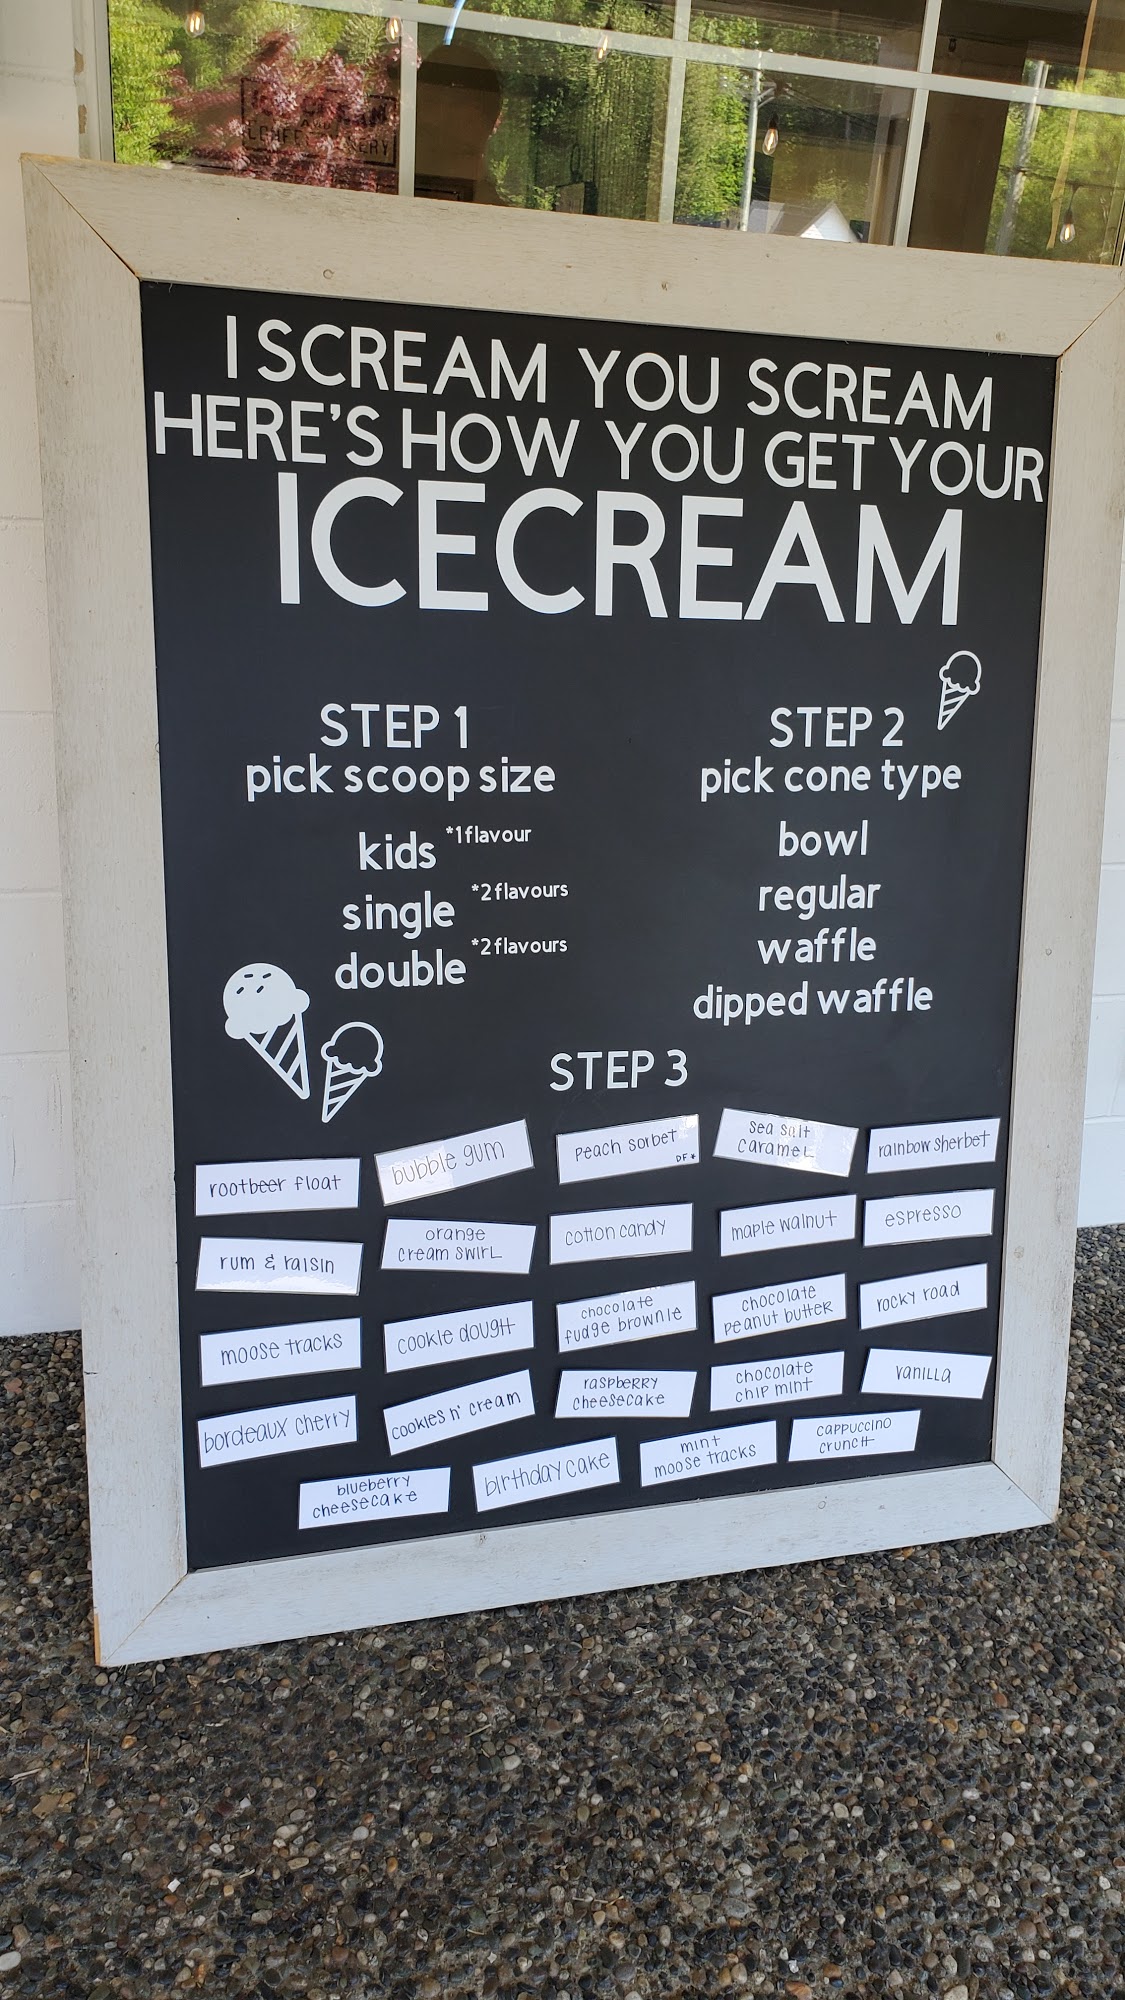 I SCREAM YOU SCREAM
HERE'S HOW YOU GET YOUR
ICECREAM
STEP 1
pick scoop size
kids *1flavour
single *2flavours
double *2flavours
STEP 2
pick cone type
bowl
regular
waffle
dipped waffle
STEP 3
rootbeer float
bubble gum
peach sorbet
DF*
sea salt
caramel
rainbow sherbet
rum & raisin
orange
cream swirl
cotton candy
maple walnut
espresso
moose tracks
cookie dough
chocolate
fudge brownie
chocolate
peanut butter
rocky road
bordeaux cherry
cookies n' cream
raspberry
cheesecake
chocolate
chip mint
vanilla
blueberry
cheesecake
birthday cake
mint
moose tracks
cappuccino
crunch